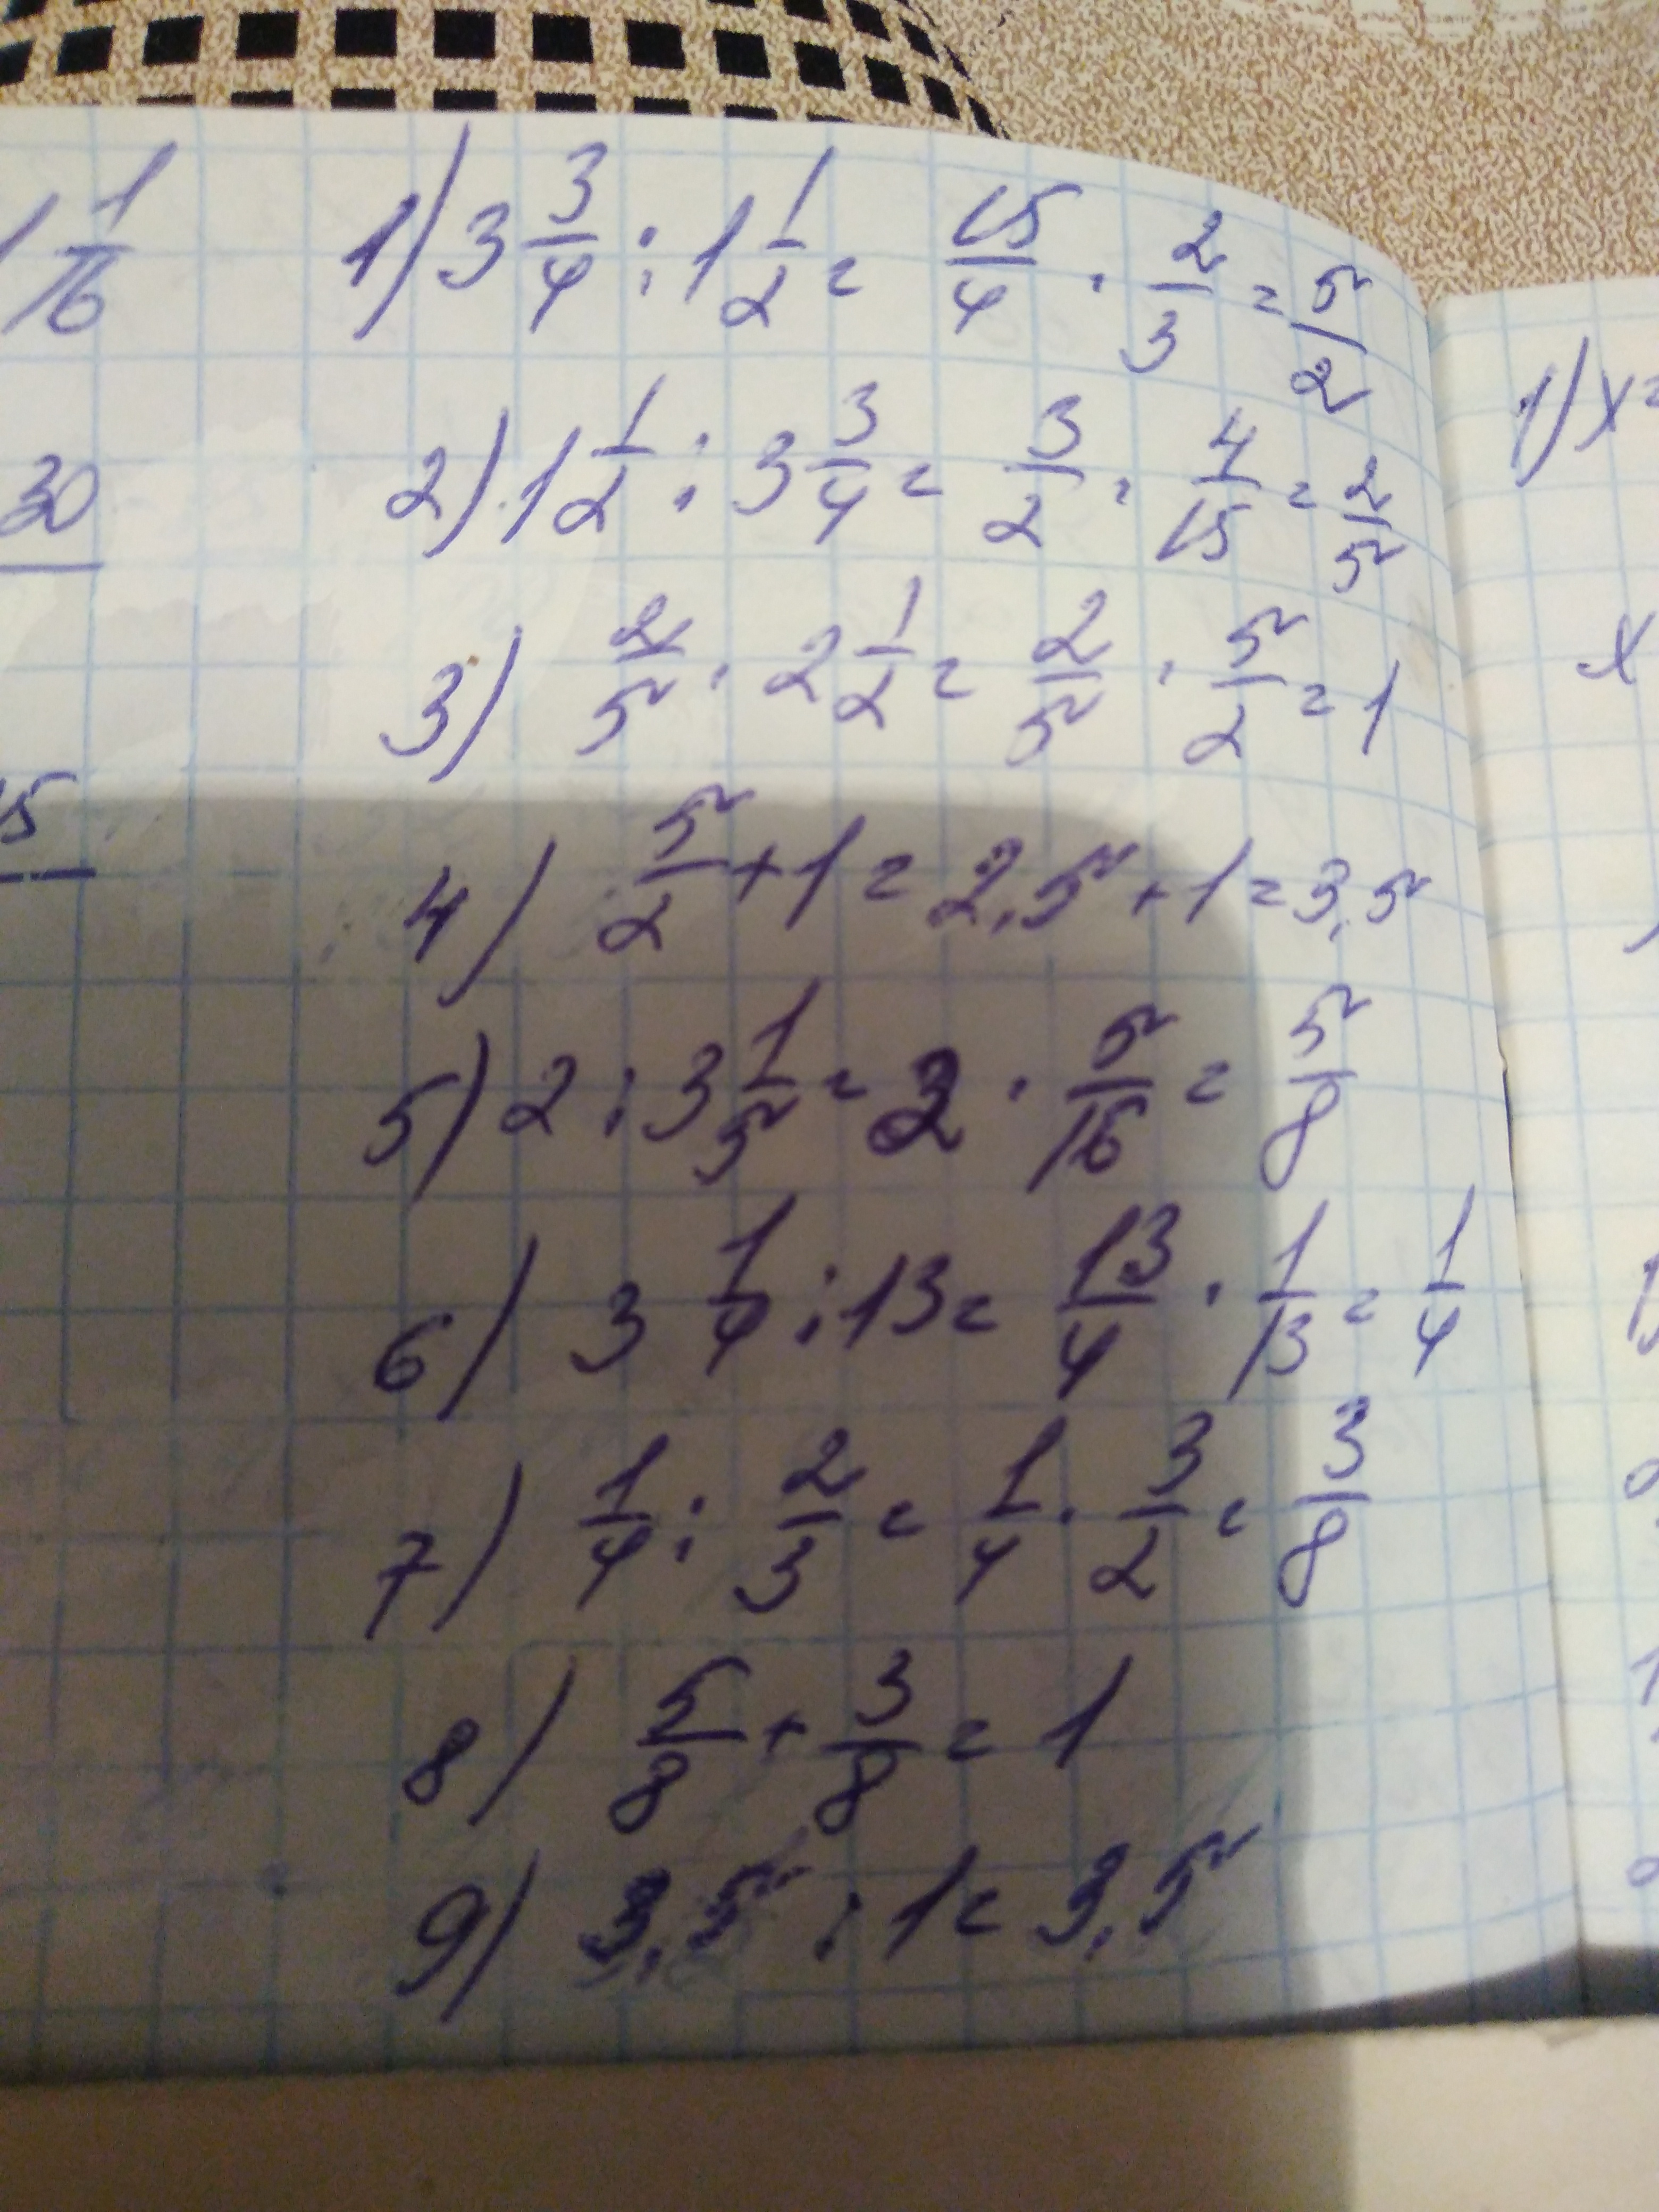 1 1/16
30
15
1) 3 3/4 : 1 1/2 = 15/4 · 2/3 = 5/2
2) 1 1/2 : 3 3/4 = 3/2 · 4/15 = 2/5
3) 2/5 · 2 1/2 = 2/5 · 5/2 = 1
4) 5/2 + 1 = 2,5 + 1 = 3,5
5) 2 : 3 1/5 = 2 · 5/16 = 5/8
6) 3 1/4 : 13 = 13/4 · 1/13 = 1/4
7) 1/4 : 2/3 = 1/4 · 3/2 = 3/8
8) 5/8 + 3/8 = 1
9) 3,5 : 1 = 3,5
1) x =
x